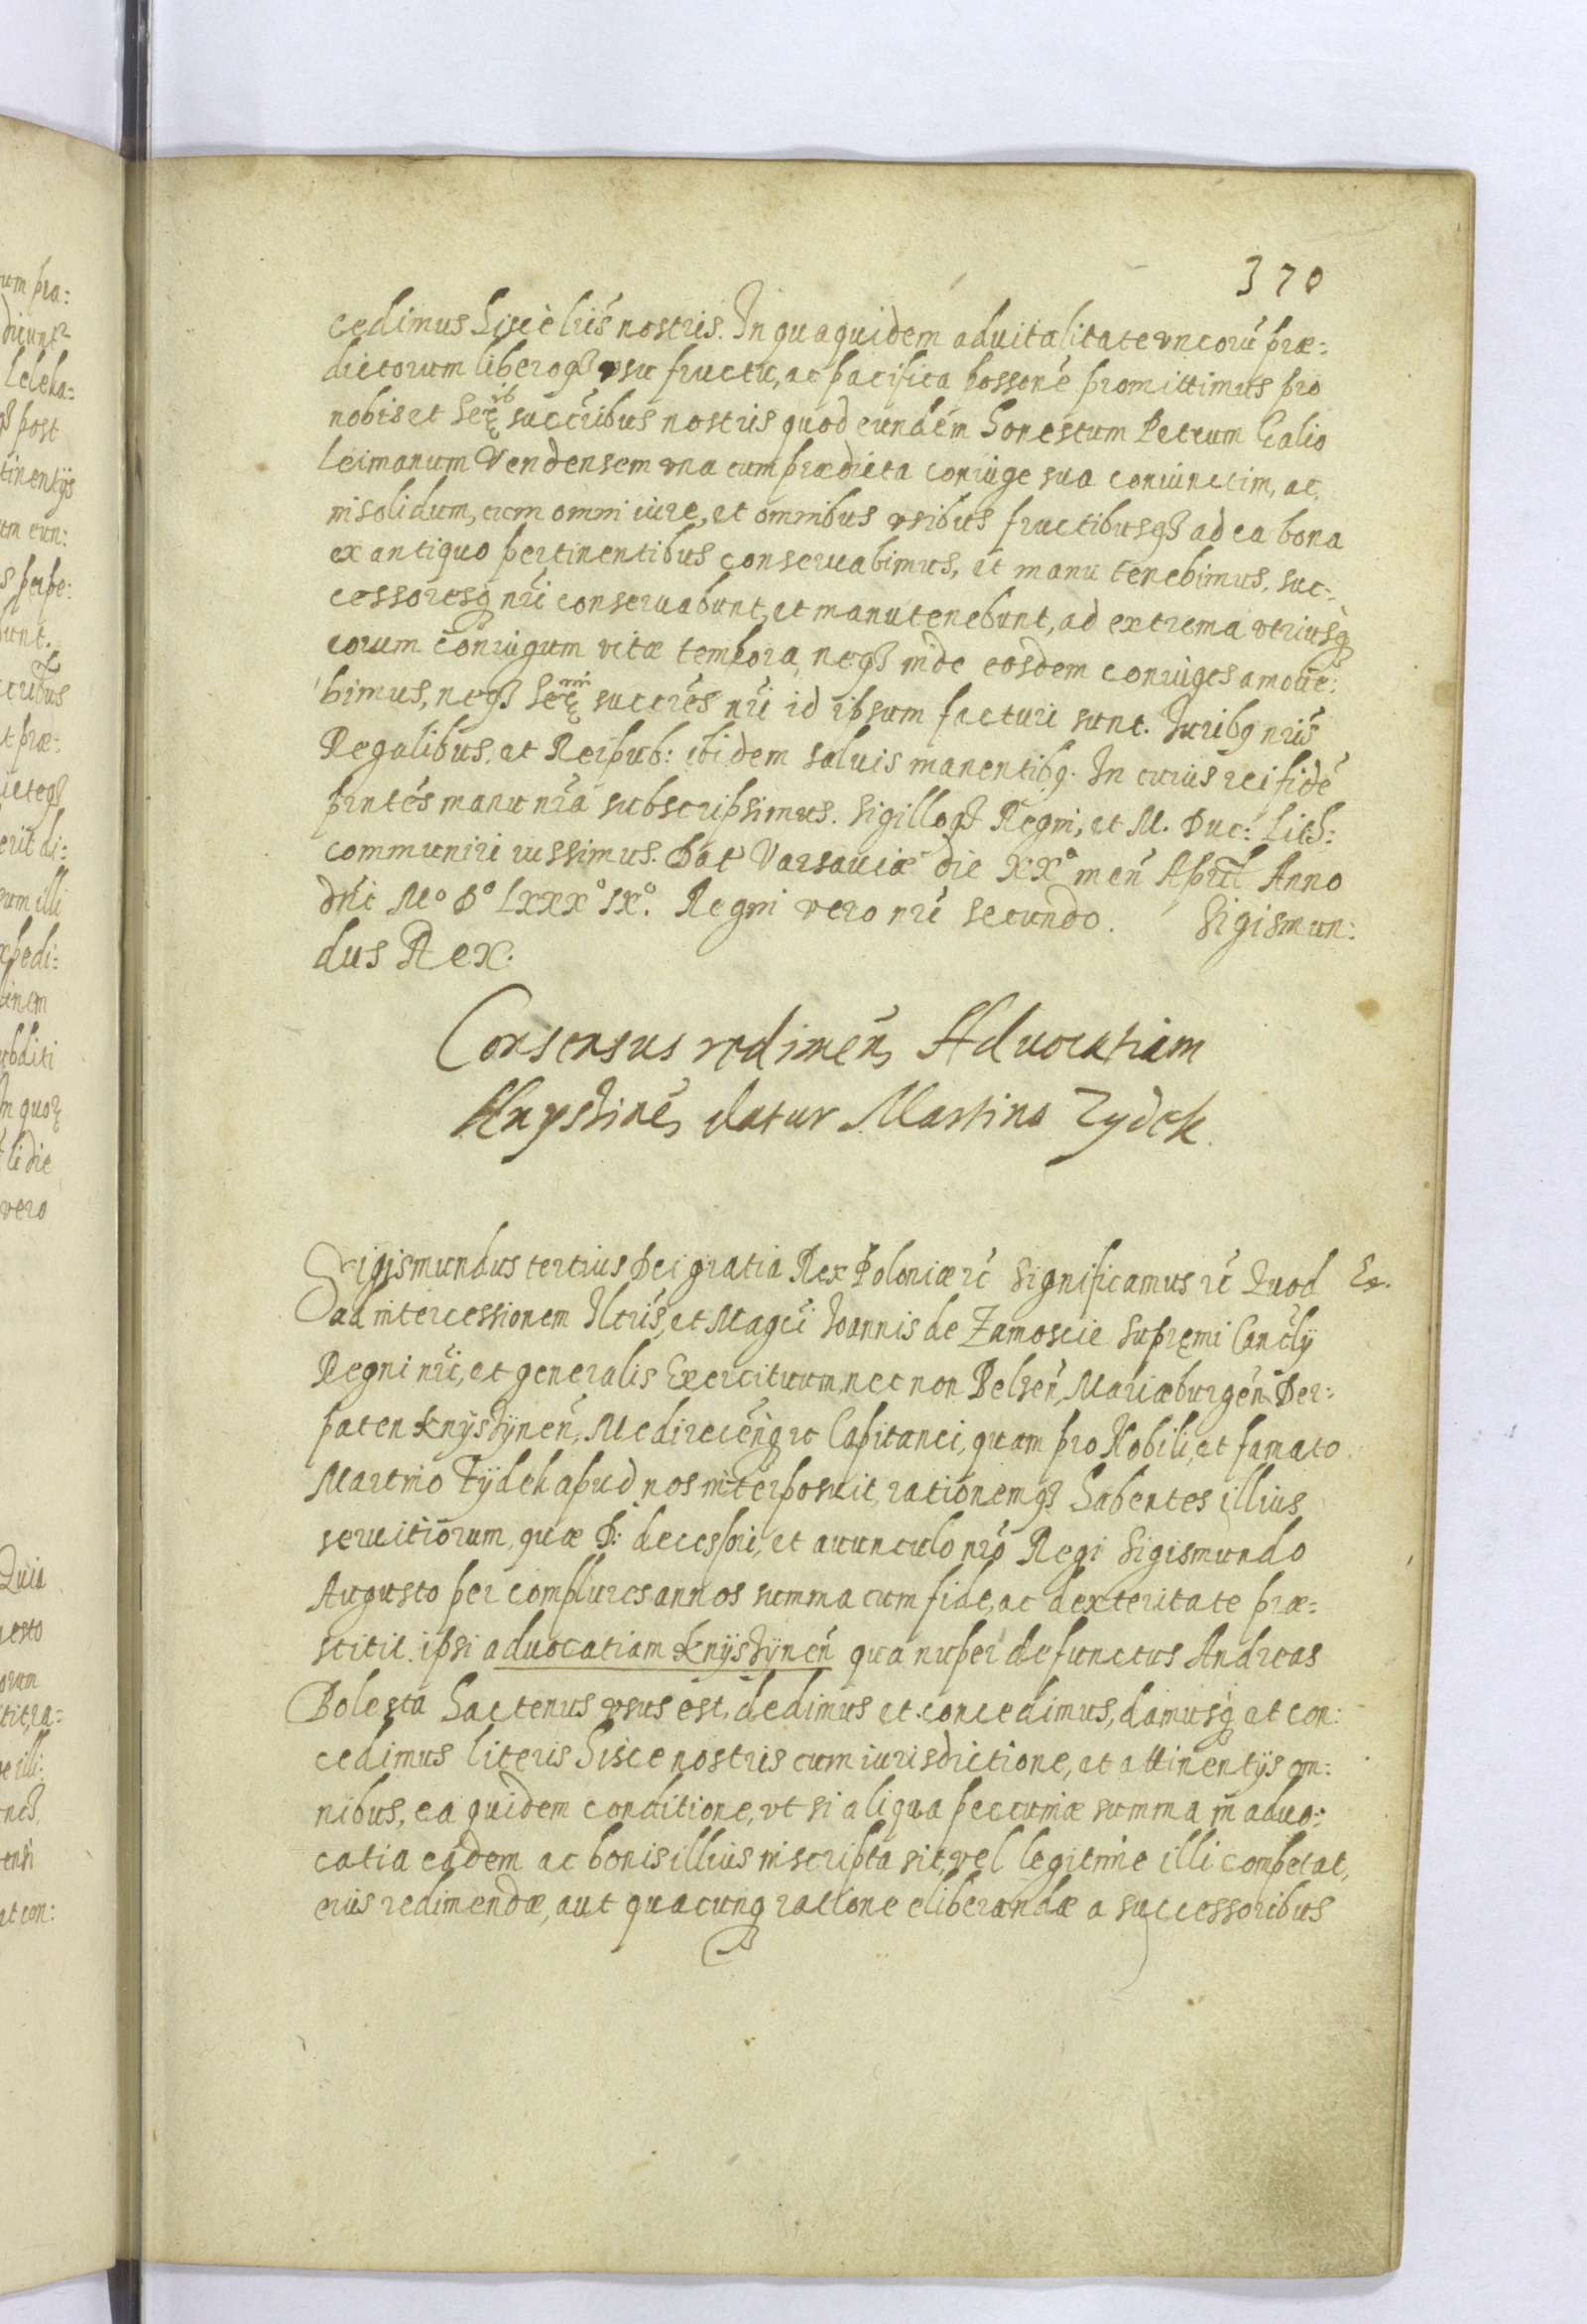 370
cedimus hisce lrīs nostris. In qua quidem advitalitate uncorū præ:
dictorum liberoq3 usu fructu, ac pacifica possonē promittimus pro
nobis et Serb succribus nostris quod eundēm honestum Petrum Calio
Leimanum Vendensem una cum prædicta coniuge sua coniunctim, ac
in solidum, cum omni iure, et omnibus usibus fructibusq3 ad ea bona
ex antiquo pertinentibus conservabimus, et manu tenebimus, suc:
cessoresq nrī conservabunt, et manutenebunt, ad extrema utriusq
eorum coniugum vitæ tempora, neq3 inde eosdem coniuges amove:
bimus, neq3 Sermi succrēs nrī id ipsum facturi sunt. Iuribq nrīs
Regalibus, et Reipub: ibidem salvis manentibq. In cuius rei fidē
pntēs manu nrā subscripsimus. Sigilloq3 Regni, et M. Duc: Lith:
communiri iussimus. Dat Varsaviæ die XXº men̄ April Anno
Dn̄i Mº Dº Lxxxº IXº. Regni vero nrī secundo. Sigismun:
dus Rex.
Consensus redimen̄ Advocatiam
Knyshinen̄ datur Martino Zydek
Sigismundus tertius Dei gratia Rex Poloniæ rc̄ Significamus rc̄ Quod
ad intercessionem Iltrīs, et Magci Ioannis de Zamoscie supręmi Canclȳ
Regni nrī, et generalis Exercituum, nec non Belsen̄, Mariæburgen̄, Der:
paten Knÿshÿnen̄, Medirecen̄q rc Capitanei, quam pro Nobili, et famato
Martino Zÿdek apud nos interposuit, rationemq3 habentes illius
servitiorum, quæ D: decessori, et avunculo nrō Regi Sigismundo
Augusto per complures annos summa cum fide, ac dexteritate præ:
stitit. ipsi advocatiam Knÿshÿnen̄ qua nuper defunctus Andreas
Bolesta hactenus usus est, dedimus et concedimus, damusq et con:
cedimus literis hisce nostris cum iurisdictione, et attinentÿs om:
nibus, ea quidem conditione, ut si aliqua pecuniæ summa in advo:
catia eadem ac bonis illius inscripta sit, vel legitime illi competat,
eius redimendæ, aut quacunq ratione eliberandæ a successoribus